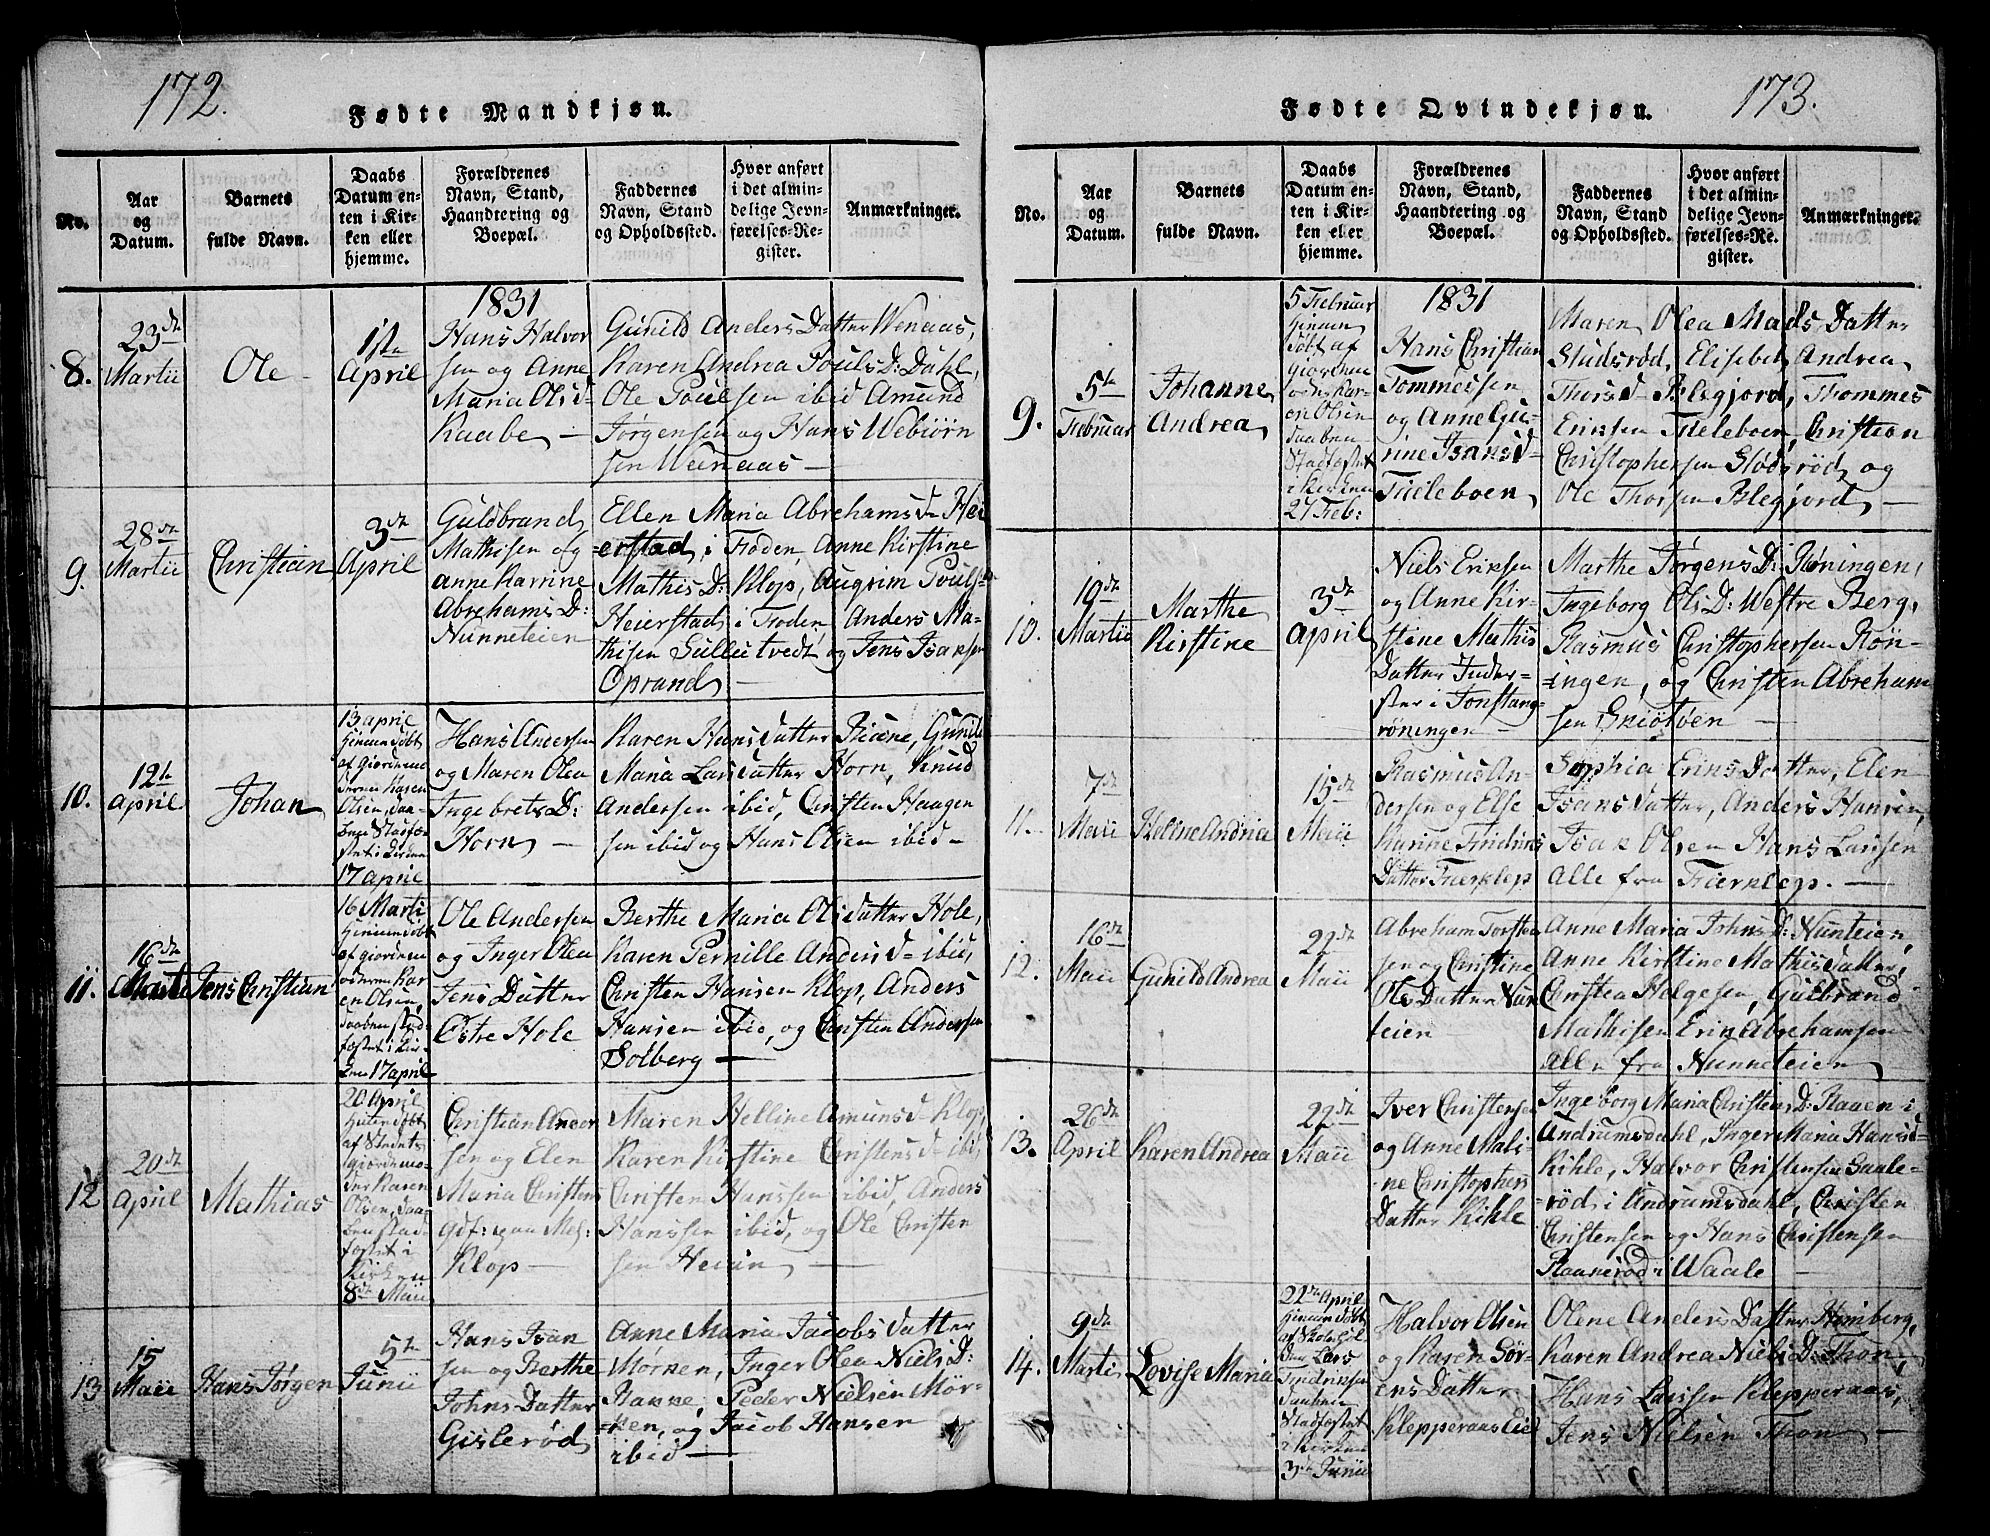 172.
Fødte Mandkjøn.
No.
Aar
og
Datum.
Barnets
fulde Navn.
Daabs
Datum en-
ten i Kir-
ken eller
hjemme.
Forældrenes
Navn, Stand,
Haandtering og
Boepæl.
Faddernes
Navn, Stand
og Opholdssted.
Hvor anført
i det almin-
delige Jevn-
førelses-Re-
gister.
Anmærkninger.
8.
23de
Martii
Ole
1ste
April
1831
Hans Halvor
sen og Anne
Maria Olsd
Raabe
Gunild Anders Datter Wenaas,
Karen Andrea Pouls D: Dahl,
Ole Poulsen ibid Amund
Jørgensen og Hans Webiørn
sen Weenaas
9.
28de
Martii
Christian
3de
April
Guldbrand
Mathisen og
Anne Karrine
Abrehams D:
Nunneteien
Ellen Maria Abrehamsd Hei
erstad i Froden, Anne Kirstine
Mathis D: Klop, Augrim Pouls
Heierstad i Froden, Anders Ma-
thisen Sullutvedt, og Jens Isaksen
Oprand
10.
12te
April
Johan
13 april
hjemmedøbt
af Giordemo
deren Karen
Olsen, daa-
ben Stadfæ
stet i Kirken
17 april
Hans Andersen
og Maren Olea
Ingebrets D:
Horn
Karen Hans Datter Biune, Gunild
Maria Lars datter Horn, Knud
Andersen ibid, Christen Haagen
sen ibid og Hans Olsen ibid
11.
16de
Marti
Jens Christian
16 Marti
hjemmedøbt
af Giordemo
deren Kar
en Olsen,
Daaben stad
fæstet i Kir-
ken 17 april
Ole Andersen
og Inger Olea
Jens Datter
Østre Hole
Berthe Maria Olsdatter Hole,
Karen Pernille Andersd ibid,
Christen Hansen Klop, Anders
Hansen ibid, og Christen Andersen
Solberg
12
20de
April
Mathias
20 April
af Stedets
Giordemo-
der Karen
Olsen, Daa-
ben stad
fæstet i
Kirken
8de Maii
Christian Ander
sen og Elen
Maria Christens
Klop
Maren Helline Amunsd Klop,
Karen Kirstine Christensd ibid,
Christen Hanssen ibid, Anders
Hanssen ibid, og Ole Christen
sen Heiun
13
15
Maii
Hans Jørgen
5te
Junii
Hans Isan
sen og Berthe
Johns Datter
Gislerød
Anne Maria Jacobs datter
Mørken, Inger Olea Niels D:
Rakke, Peder Nielsen Mør-
ken, og Jacob Hansen
ibid
173.
Fødte Qvindekjøn.
No.
Aar
og
Datum.
Barnets
fulde Navn.
Daabs
Datum en-
ten i Kir-
ken eller
hjemme.
Forældrenes
Navn, Stand,
Haandtering og
Boepæl.
Faddernes
Navn, Stand
og Opholdssted.
Hvor anført
i det almin-
delige Jevn-
førelses-Re-
gister.
Anmærkninger.
9.
5te
Februar
Johanne
Andrea
5 Februar
hjemme
døbt af
Giordemo
deren Kar
en Olsen
daaben
Stadfæstet
i Kirken
27 Feb:
1831
Hans Christian
Tommessen
og Anne Gu
rine Isansd
Fieleboen
Maren Olea Mads Datter
Studsrød, Elisebet Andrea
Thorsd Blegjord, Thommes
Eriksen Fieleboen, Christian
Christophersen Slødsrød, og
Ole Thorsen Blegjord
10.
19de
Martii
Marthe
Kirstine
3de
April
Niels Eriksen
og Anne Kir-
stine Mathis
Datter Inder-
ster i Tonstang-
røningen
Marthe Jørgens D: Røningen,
Ingeborg Ols D: Westre Berg,
Rasmus Christophersen Røn-
ingen, og Christen Abreham
sen Sniotven
11.
7de
Maii
Helline Andrea
15de
Maii
Rasmus An-
dersen og Else
Karine Fredriks
Datter Fierklep
Sophia Eriks Datter, Elen
Isans datter, Anders Hansen,
Isak Olsen Hans Larssen
Alle fra Fierklep.
12.
16de
Maii
Gunild Andrea
22de
Maii
Abreham Torsten
sen og Christine
Ols Datter Nun
teien
Anne Maria Johns D: Nunteien,
Anne Kirstine Mathis datter,
Christen Helgesen, Gulbrand
Mathisen Erik Abrehamsen
Alle fra Nunneteien
13.
26de
April
Karen Andrea
22de
Maii
Iver Christensen
og Anne Mali-
ne Christophers
Datter Kihle
Ingeborg Maria Christens D: Raaen i
Andrumsdahl, Inger Maria Hansd
Kihle, Halvor Christensen Gaale-
rød i Andrumsdahl, Christen
Christensen og Hans Christensen
Raanerød i Waale
14.
9de
Marti
Lovise Maria
22de April
hjemmedøbt
af Skolehol
den Lars
Fredriksen
daaben
Stadfæstet
i Kirken
3de Junii
Halvor Olsen
og Karen Sør-
ens Datter
Klepperaas Eie
Olene Anders Datter Homberg,
Karen Andrea Niels D: Thon,
Hans Larssen Klepperaas,
Jens Nielsen Thon